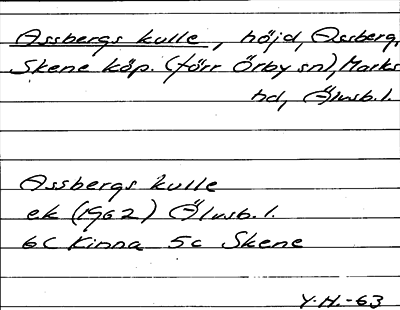 Assbergs kulle, höjd, Assberg,
Skene köp. (förr Örby sn), Marks
hd, Älvsb.l.
Assbergs kulle
ek (1962) Älvsb.l.
6C Kinna 5c Skene
Y.H.-63